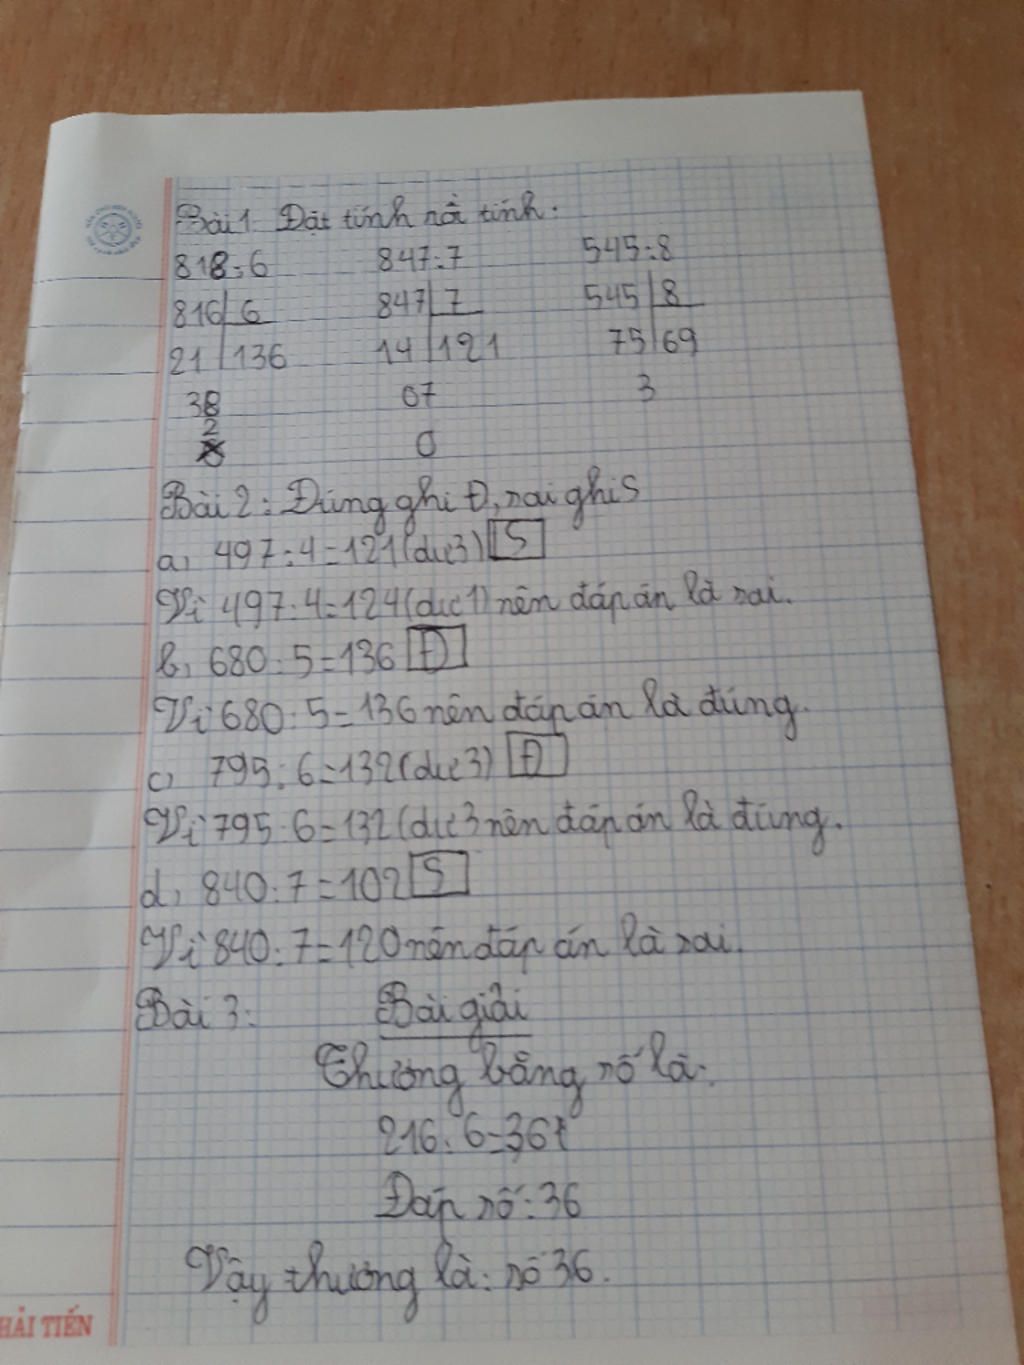 Bài 1: Đặt tính rồi tính:
818:6 847:7 545:8
816 6 847 7 545 8
21 136 14 121 75 69
38 07 3
2 0
Bài 2: Đúng ghi Đ, sai ghi S
a, 497:4=121(dư 3) S
Vì 497:4=124(dư 1) nên đáp án là sai.
b, 680:5=136 Đ
Vì 680:5=136 nên đáp án là đúng.
c, 795:6=132(dư 3) Đ
Vì 795:6=132(dư 3 nên đáp án là đúng.
d, 840:7=102 S
Vì 840:7=120 nên đáp án là sai.
Bài 3: Bài giải
Thương bằng số là:
216:6=36
Đáp số: 36
Vậy thương là: số 36.
HẢI TIẾN